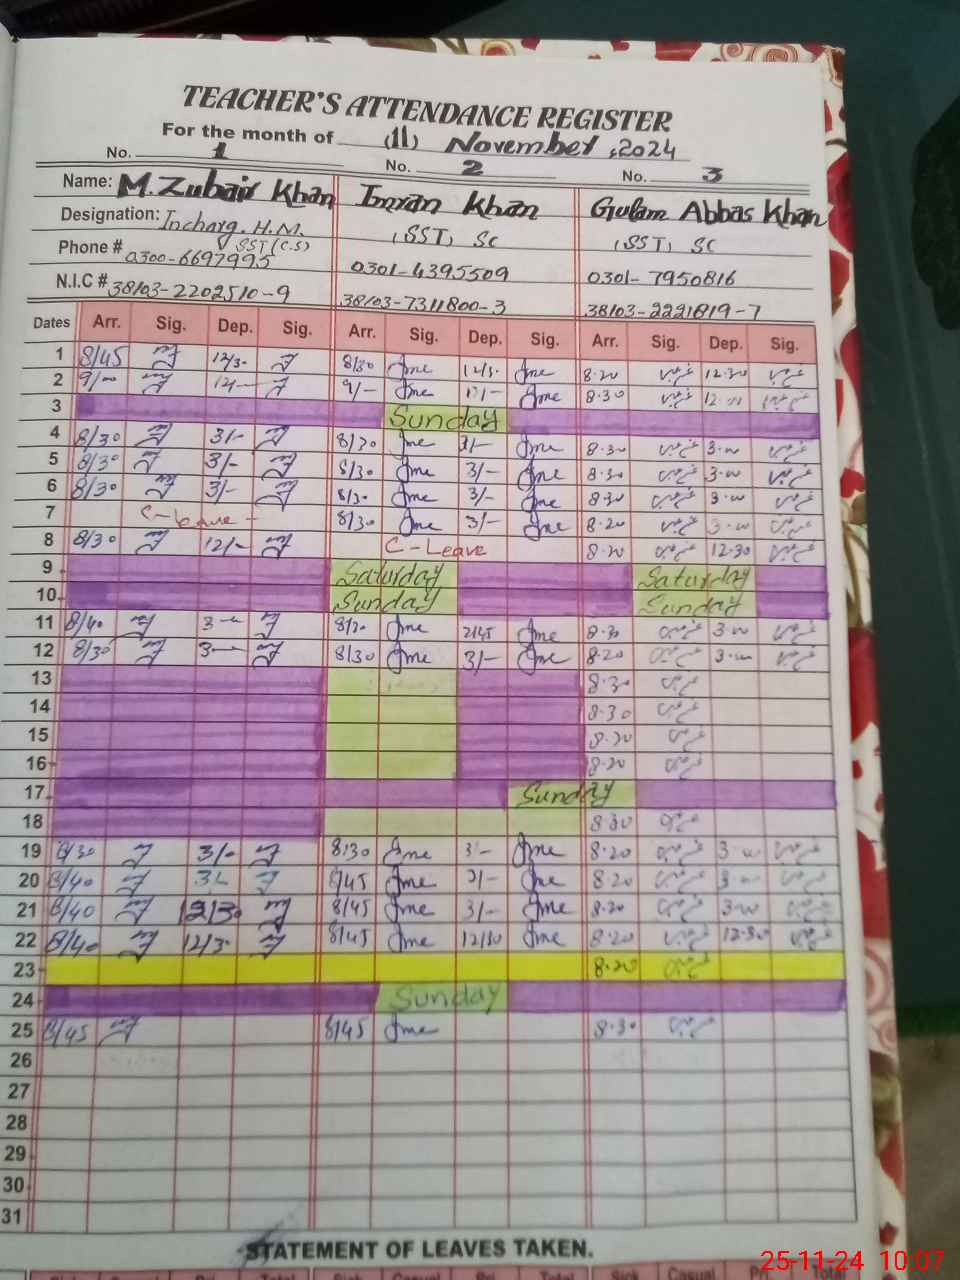 TEACHER'S ATTENDANCE REGISTER
For the month of (11) November ,2024
No. 1 No. 2 No. 3
Name: M.Zubair Khan Imran Khan Gulam Abbas Khan
Designation: Incharg. H.M. (SST) SC (SST) SC
SST (C.S)
Phone # 0300-6697995 0301-4395509 0301-7950816
N.I.C # 38103-2202510-9 38103-7311800-3 38103-2221819-7
Dates Arr. Sig. Dep. Sig. Arr. Sig. Dep. Sig. Arr. Sig. Dep. Sig.
1 8/45 12/30 8/30 Ime 12/30 Ime 8-20 12-30
2 9/00 12/- 9/- Ime Ime 8-30 12-00
3 Sunday
4 8/30 3/- 8/30 Ime 3/- Ime 8-30 3-00
5 8/30 3/- 8/30 Ime 3/- Ime 8-30 3-00
6 8/30 3/- 8/30 Ime 3/- Ime 8-30 3-00
7 C-Leave 8/30 Ime 3/- Ime 8-20 3-00
8 8/30 12/- C-Leave 8-20 12-30
9 Saturday Saturday
10 Sunday Sunday
11 8/40 3- 8/30 Ime 2/45 Ime 8-30 3-00
12 8/30 3- 8/30 Ime 3/- Ime 8-20 3-00
13 8-30
14 8-30
15 8-30
16 8-20
17 Sunday
18 8-30
19 8/30 3/- 8/30 Ime 3/- Ime 8-20 3-00
20 8/40 3/- 8/45 Ime 3/- Ime 8-20 3-00
21 8/40 12/30 8/45 Ime 3/- Ime 8-20 3-00
22 8/40 12/30 8/45 Ime 12/30 Ime 8-20 12-30
23 8-20
24 Sunday
25 8/45 8/45 Ime 8-30
26
27
28
29
30
31
STATEMENT OF LEAVES TAKEN.
Total Sick Casual Total Sick Casual Total
25-11-24 10:07